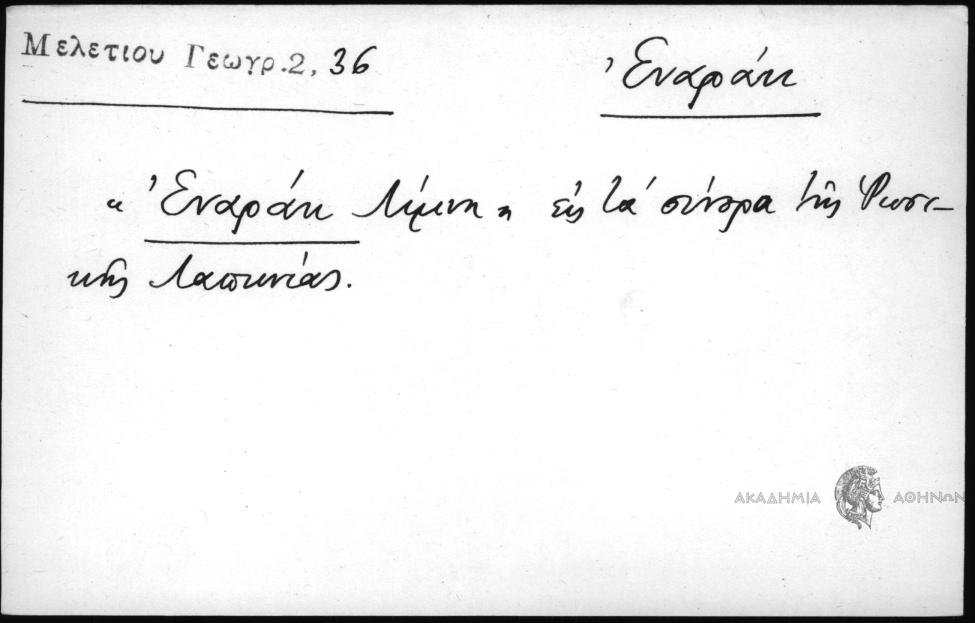 Μελετιου Γεωγρ. 2, 36
Ἐναράκ
« Ἐναράκ Λίμνη » εἰς τά σύνορα τῆς Ῥωσι-
κῆς Λαπωνίας.
ΑΚΑΔΗΜΙΑ ΑΘΗΝΩΝ